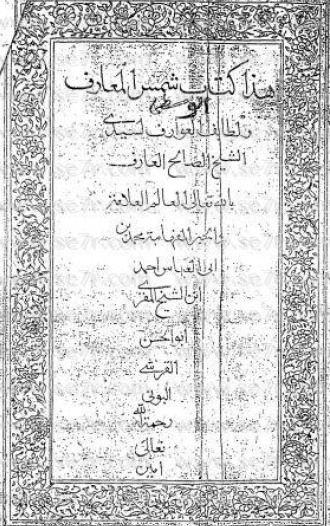 هذا كتاب شمس المعارف
الوسطى
ولطائف العوارف لسيدى
الشيخ الصالح العارف
بالله تعالى العالم العلامة
ابى العباس احمد
ابن الشيخ المقرى
ابو الحسن
القرشى
البونى
رحمة الله
تعالى
امين